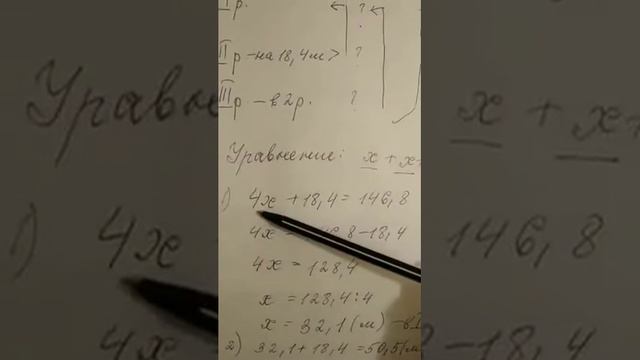 I р. ?
II р – на 18,4 м > ?
III р – в 2 р. ?
Уравнение: x + x+
1) 4x + 18,4 = 146,8
4x = 8 – 18,4
4x = 128,4
x = 128,4 : 4
x = 32,1 (м) – в I
2) 32,1 + 18,4 = 50,5 (м